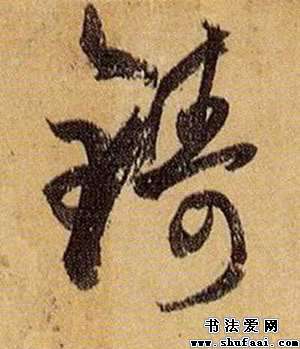 鑄
书法爱网
www.shufaai.com